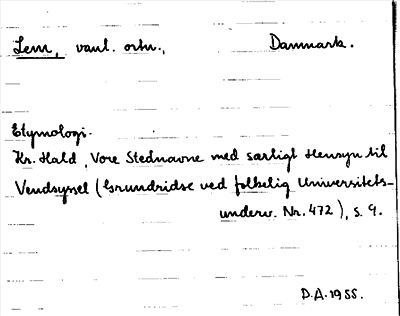 Lem, vanl. ortn., Danmark.
Etymologi.
Kr. Hald, Vore Stednavne med særligt Hensyn til
Vendsyssel (Grundridse ved folkelig Universitets-
underv. Nr. 472), s. 9.
D.A. 1955.